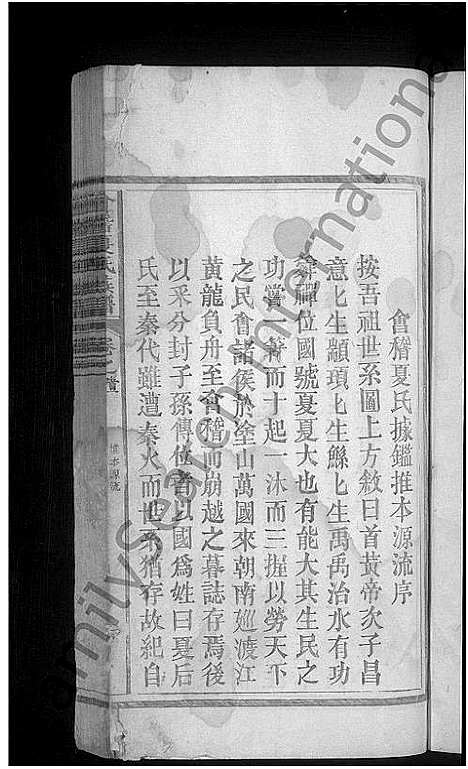 會稽夏氏據鑑推本源流序
按吾祖世系圖上方敘曰首黃帝次子昌
意匕生顓頊匕生鯀匕生禹禹治水有功
舜禪位國號夏夏大也有能大其生民之
功嘗一饋而十起一沐而三握以勞天下
之民會諸侯於塗山萬國來朝南廵渡江
黃龍負舟至會稽而崩越之暮誌存焉後
以采分封子孫傳位者以國爲姓曰夏后
氏至秦代雖遭秦火而世系猶存故紀自
會稽夏氏宗譜
卷之首
推本源流
FamilySearch International